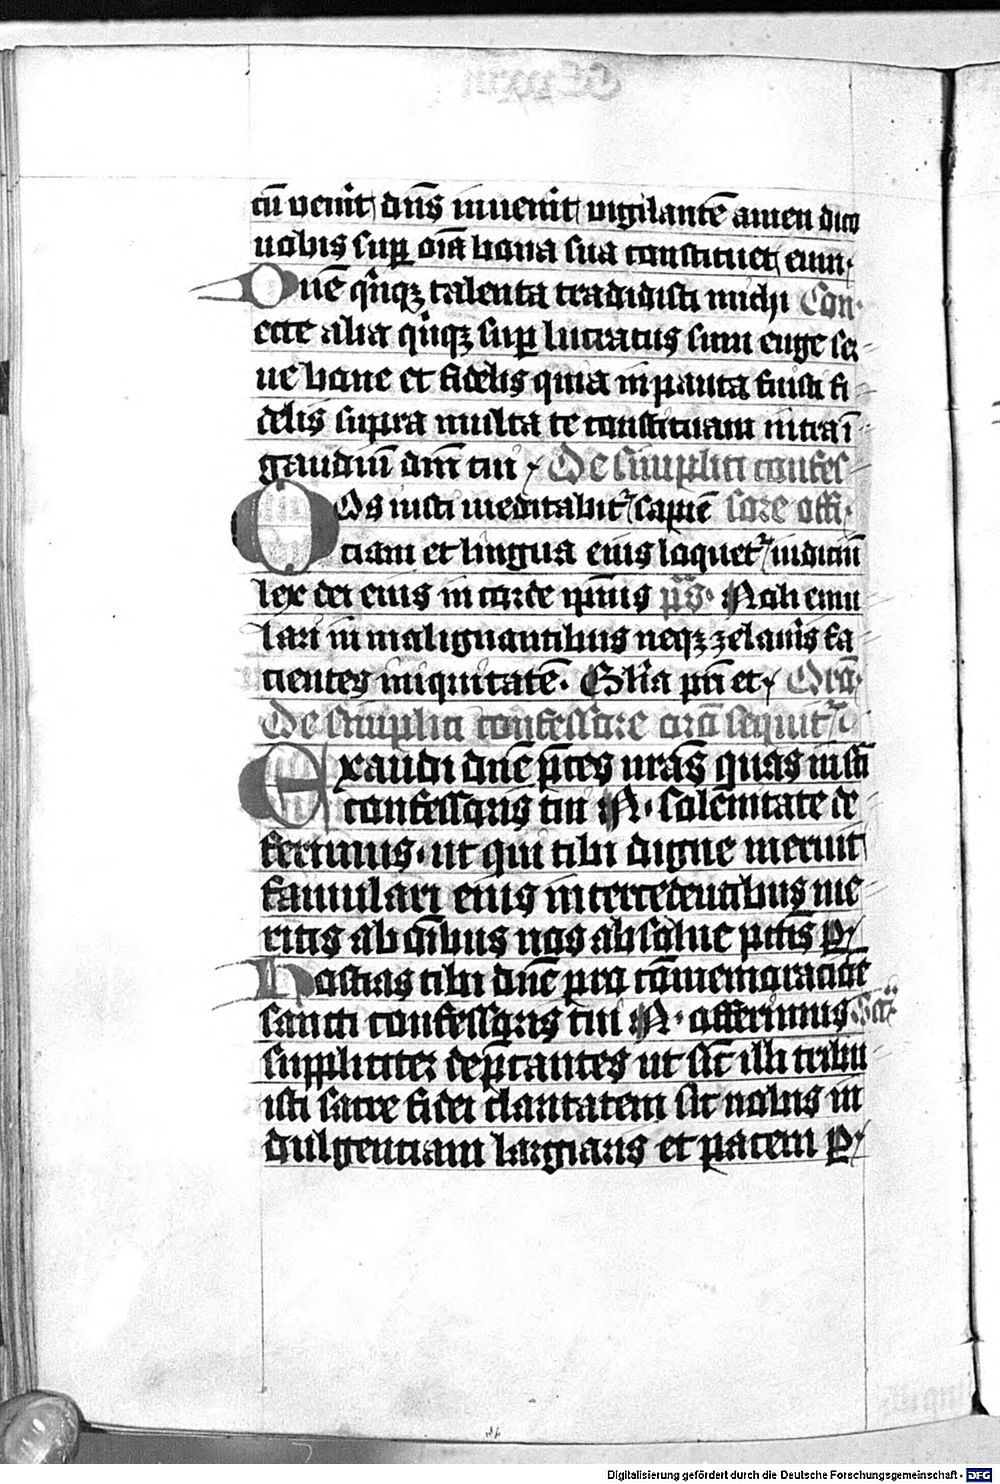 cū venit dn̄s inuenit vigilantē amen dico
uobis sup oīa bona sua constituet eum·
Dnē qnqꝫ talenta tradidisti michi Con·
ecce alia qnqꝫ sup lucratus sum euge ser
ue bone et fidelis quia in pauca fuisti fi
delis supra multa te constituam intra ī
gaudiū dnī tui De simplici confes
Os iusti meditabit sapiē sore offi·
ciam et lingua eius loquet iudiciū
lex dei eius in corde ipsius ps· Noli emu
lari in malignantibus neqꝫ zelaueris fa
cientes iniquitatē· Glia pri et Oro·
De simplici confessore orō sequit
Exaudi dnē pces nras quas in sci
confessoris tui N· solēnitate de
ferimus· ut qui tibi digne meruit
famulari eius intercedentibus me
ritis ab oībus nos absolue pctis P
hostias tibi dnē pro cōmemoracione
sancti confessoris tui N· offerimus Secr
suppliciter dep̄cantes ut sic illi tribu
isti sacre fidei claritatem sic nobis in
dulgentiam largiaris et pacem P
Digitalisierung gefördert durch die Deutsche Forschungsgemeinschaft - DFG